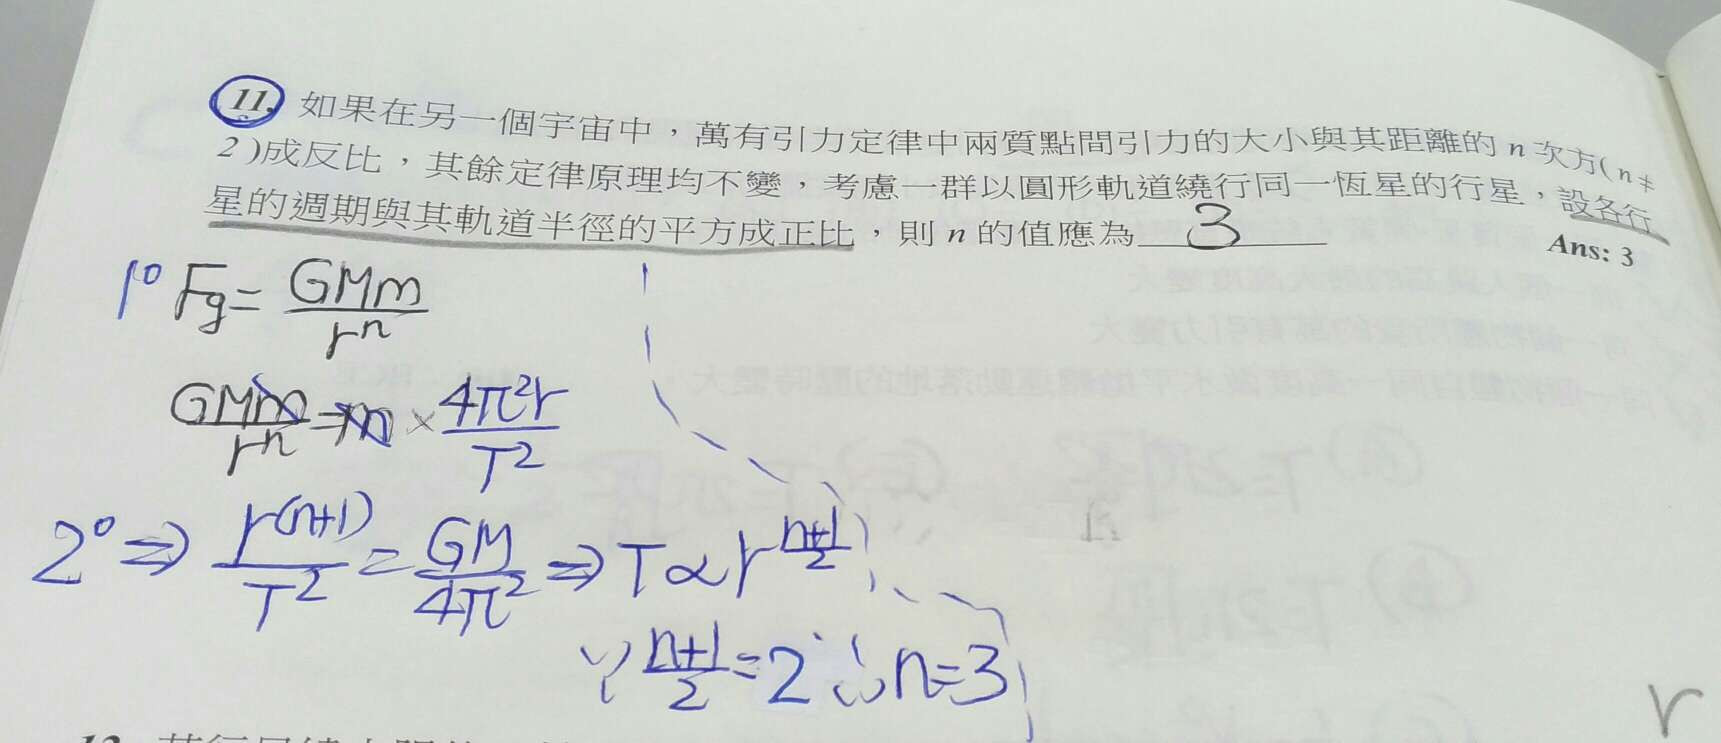 11. 如果在另一個宇宙中，萬有引力定律中兩質點間引力的大小與其距離的 n 次方( n ≠
2 )成反比，其餘定律原理均不變，考慮一群以圓形軌道繞行同一恆星的行星，設各行
星的週期與其軌道半徑的平方成正比，則 n 的值應為 3
Ans: 3
1° Fg = GMm / r^n
GMm / r^n = m × 4π²r / T²
2° ⇒ r^(n+1) / T² = GM / 4π² ⇒ T ∝ r^(n+1)/2
∵ n+1 / 2 = 2 ∴ n = 3
r